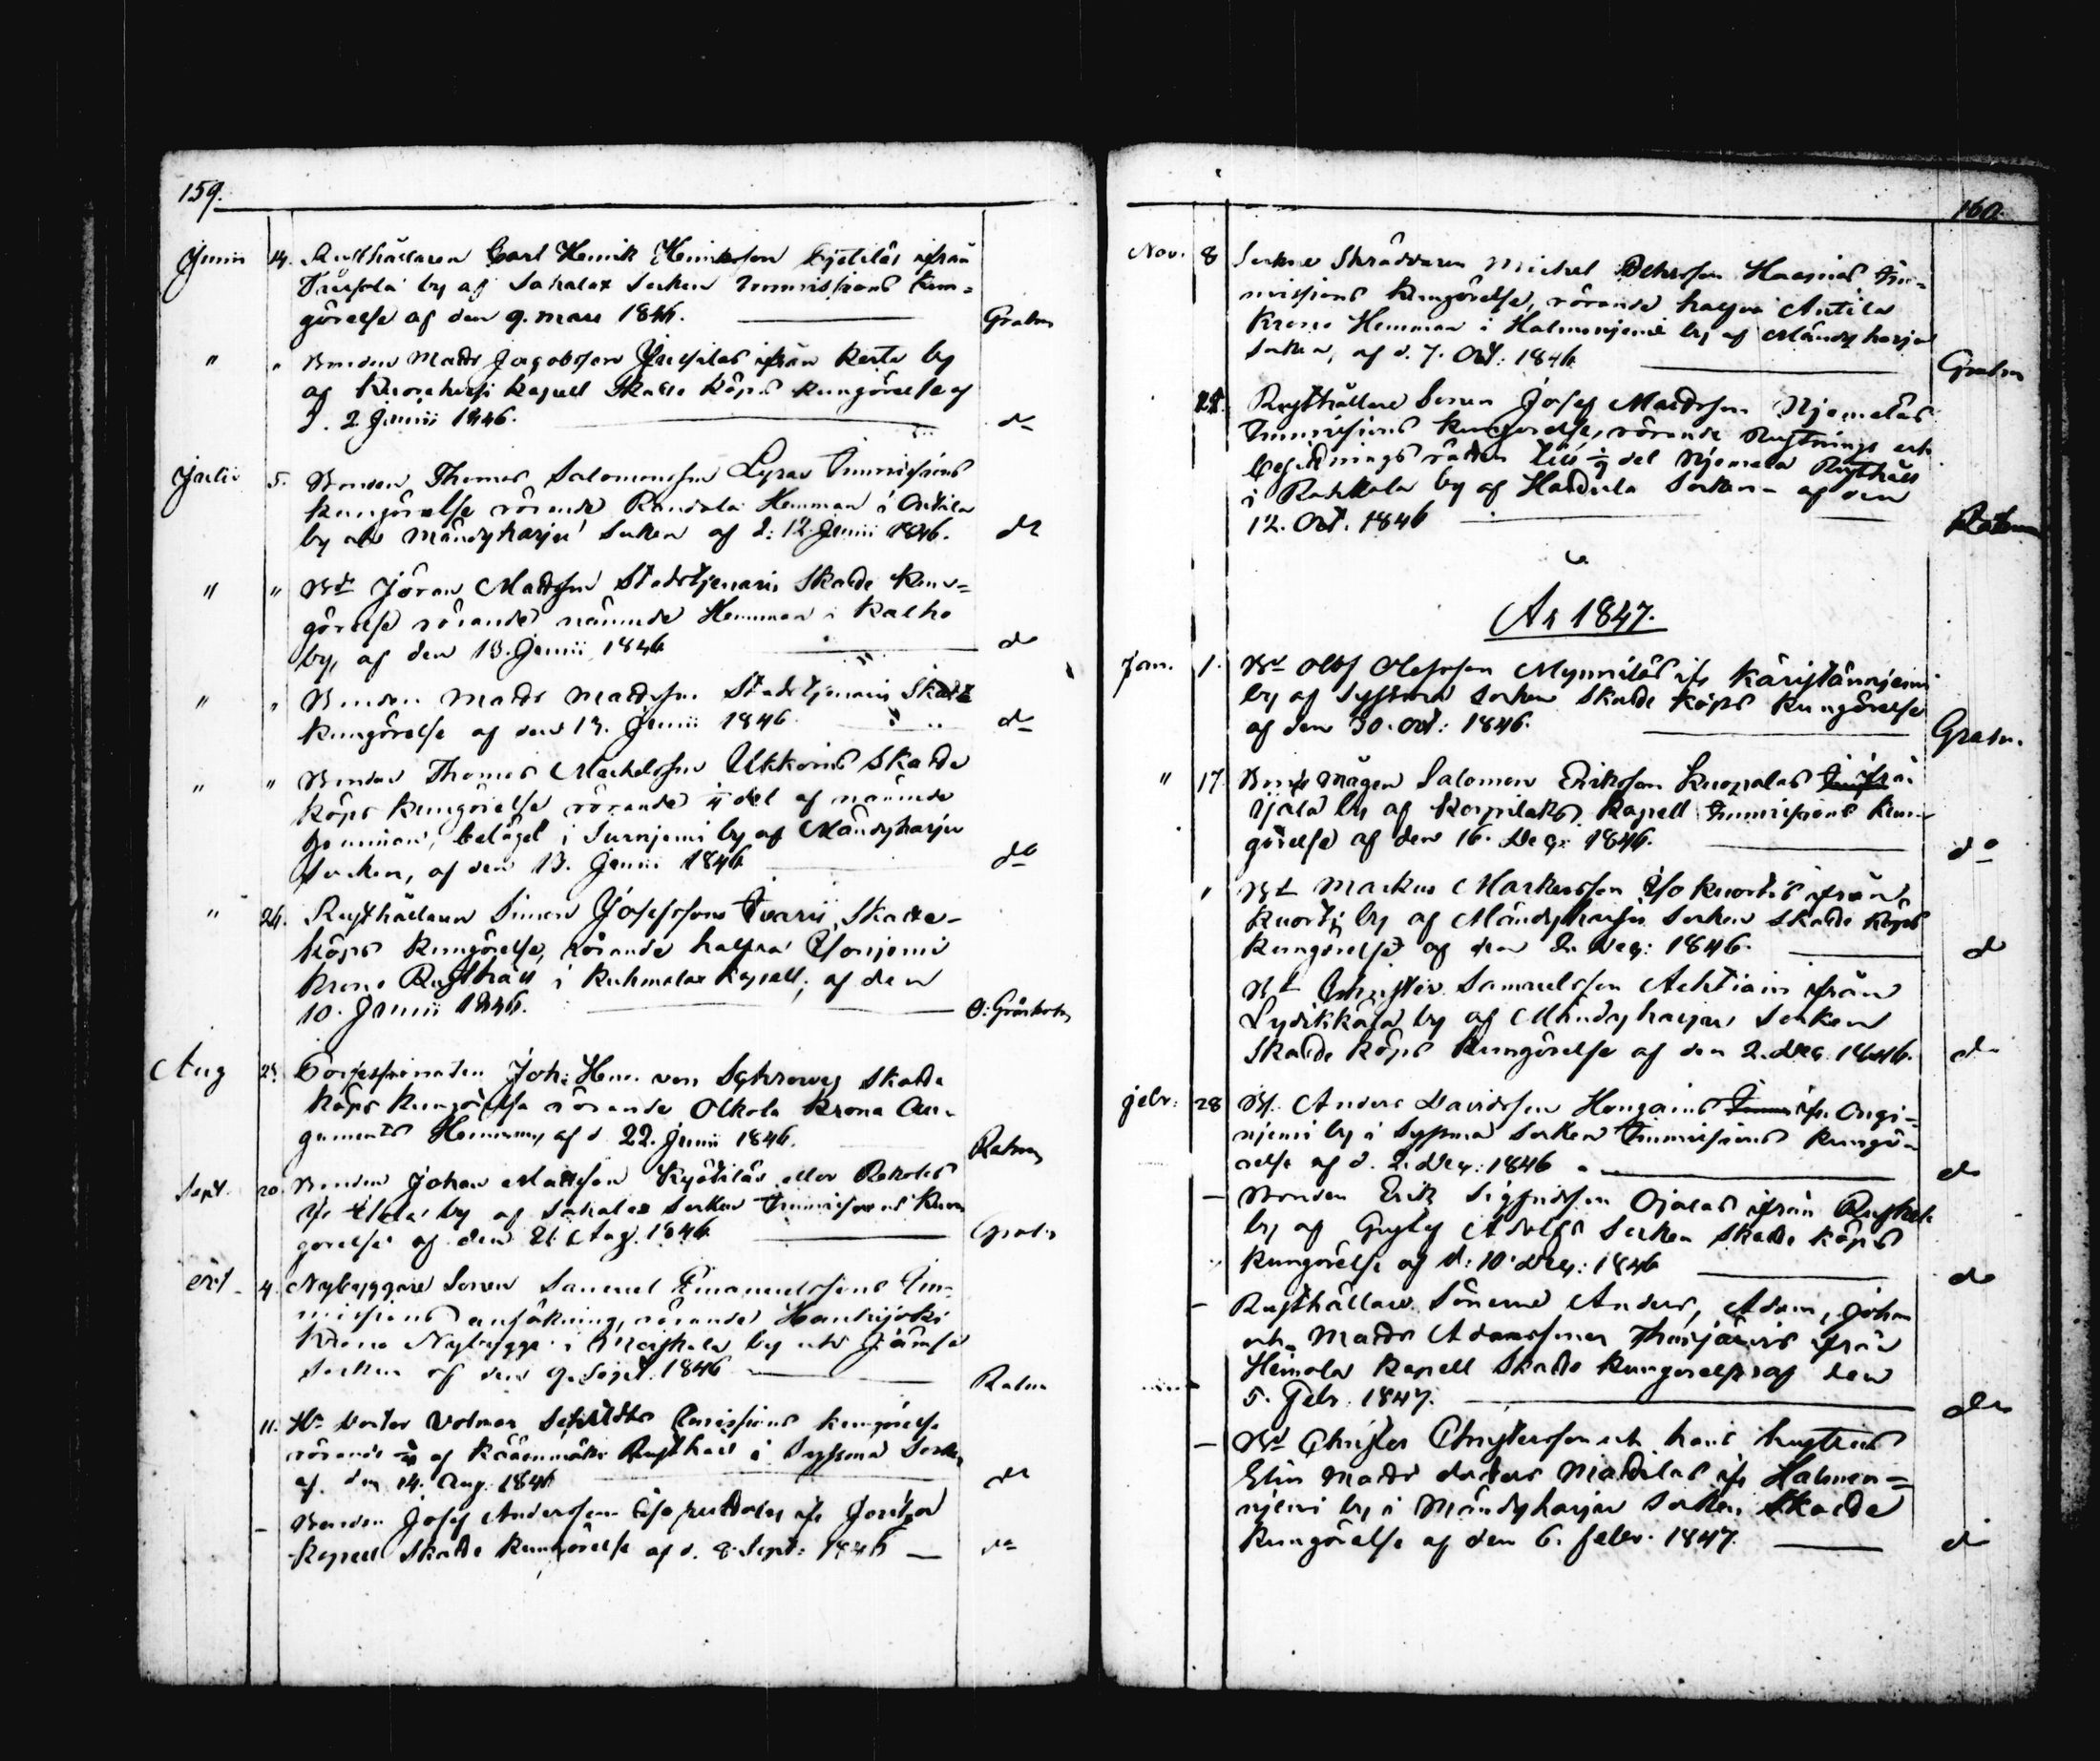 159.
Junii 14. Rusthållaren Carl Henrik Henriksson Kjetiläs ifrån
by af Sahalax Socken Immissions Kun=
görelse af den 9. mars 1846. Grahn
" " Bonden Matts Jacobsson ifrån Kerte by
af Kuorehvesi Kapell Skatte Köps Kungörelse af
d. 2 Junii 1846. do
Julii 5. Bonden Thomas Salomonsson Lyras Immissions
Kungörelse rörande Randala Hemman i Antila
by utaf Mändyharju Socken af d: 12. Junii 1846. do
" " Bd Jöran Mattsson Stadstjenaris Skatte Kun=
görelse rörande nämnde Hemman i Kalho
by, af den 13. Junii 1846 do
" " Bonden Matts Mattsson Stadstjenaris Skatte
Kungörelse af den 13. Junii 1846. do
" " Bonden Thomas Michelsson Ukkonis Skatte
Köps Kungörelse rörande del af nämnde
hemman, belägit i Surnjemi by af Mändyharju
Socken, af den 13. Junii 1846 do
" 26. Rusthållaren Simon Josefssons Ivaris Skatte-
köps Kungörelse, rörande halfva
Krono Rusthåll i Kuhmalax Kapell, af den
10. Junii 1846.
Aug 23 Joh: Henr. von Schrowe Skatte
Köps Kungörelse rörande Olkola Krono Au-
guments Hemman, af d 22. Junii 1846. Rahm
Sept. 20. Bonden Johan Mattsson Kyötiläs eller Rekolas
ifr by af Sahalax Socken Immissions Kun
görelse af den 21. Aug. 1846 Grahn
Oct. 4. Nybyggare Sonen Samuel Emanuelssons Im=
missions ansökning, rörande Hankijoki
Krono Nybygge i by utaf Jämsä
Socken af den 9. Sept. 1846 Rahm
11. Hr Doctor Volmar Schildts Immissions Kungörelse
rörande af Rusthåll i Sysmä Socken
af den 14. Aug. 1846 do
- Bonden Josef Andersson ifr Joutsa
Kapell Skatte Kungörelse af d. 8. Sept: 1846 do
160.
Nov. 8 Socken Skräddaren Michel Petersson Haapias Im=
missions Kungörelse, rörande halfva Antila
Krono Hemman i Halmenjemi by af Mändyharju
Socken, af d. 7. Oct: 1846 Grahn
22. Rusthållare Sonen Josef Mattsson Njemeläs
Immissions Kungörelse, rörande Rustnings och
besittnings rätten till del Njemelä Rusthåll
i by af Hattula Socken af den
12. Oct. 1846 Rahm
År 1847.
Jan. 1. Bd Olof Olofsson Mynniläs ifr Käristännjemi
by af Syssmä Socken Skatte Köps Kungörelse
af den 30. Oct: 1846. Grahn.
" 17. Bonde Mågen Salomon Eriksson Kuopalas ifrån
by af Korpilaks Kapell Immissions Kun-
görelse af den 16. Dec: 1846. do
" Bd Markus Markusson Iso Kuortis ifrån
Kuorti by af Mändyharju Socken Skatte Köps
Kungörelse af den 2. Dec: 1846. do
Bd Christer Samuelsson Achtiain ifrån
Lydikkälä by af Mändyharju Socken
Skatte Köps Kungörelse af den 2. Dec 1846. do
Febr: 28 Bd Anders Davidsson Hongains ifr. Ongi=
njemi by i Syssmä Socken Immissions Kungö-
relse af d. 2. Dec: 1846 do
- Bonden Erik Sigfridsson Ojalas ifrån
by af Gustaf Adolfs Socken Skatte Köps
Kungörelse af d: 10. Dec: 1846 do
- Rusthållare Sönerne Anders, Adam, Johan
och Matts Adamssöner ifrån
Heinola Kapell Skatte Kungörelse af den
5. Febr. 1847. do
- Bd Christer Christersson och hans hustrus
Elin Matts dotters Mattilas ifr Halmen=
njemi by i Mändyharju Socken Skatte
Kungörelse af den 6. Febr. 1847. do